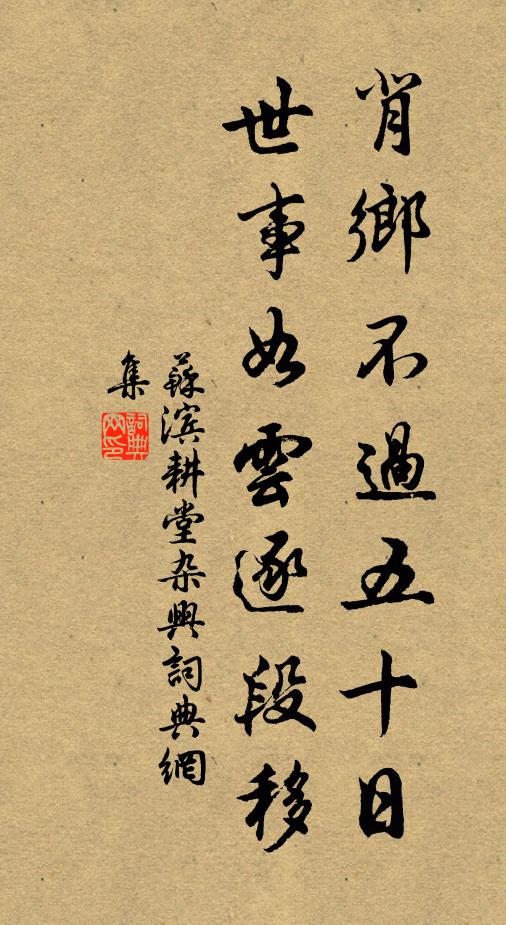 肖鄉不過五十日
世事如雲逐段移
蘇滨耕堂杂興詞典網
集
詞典
網印